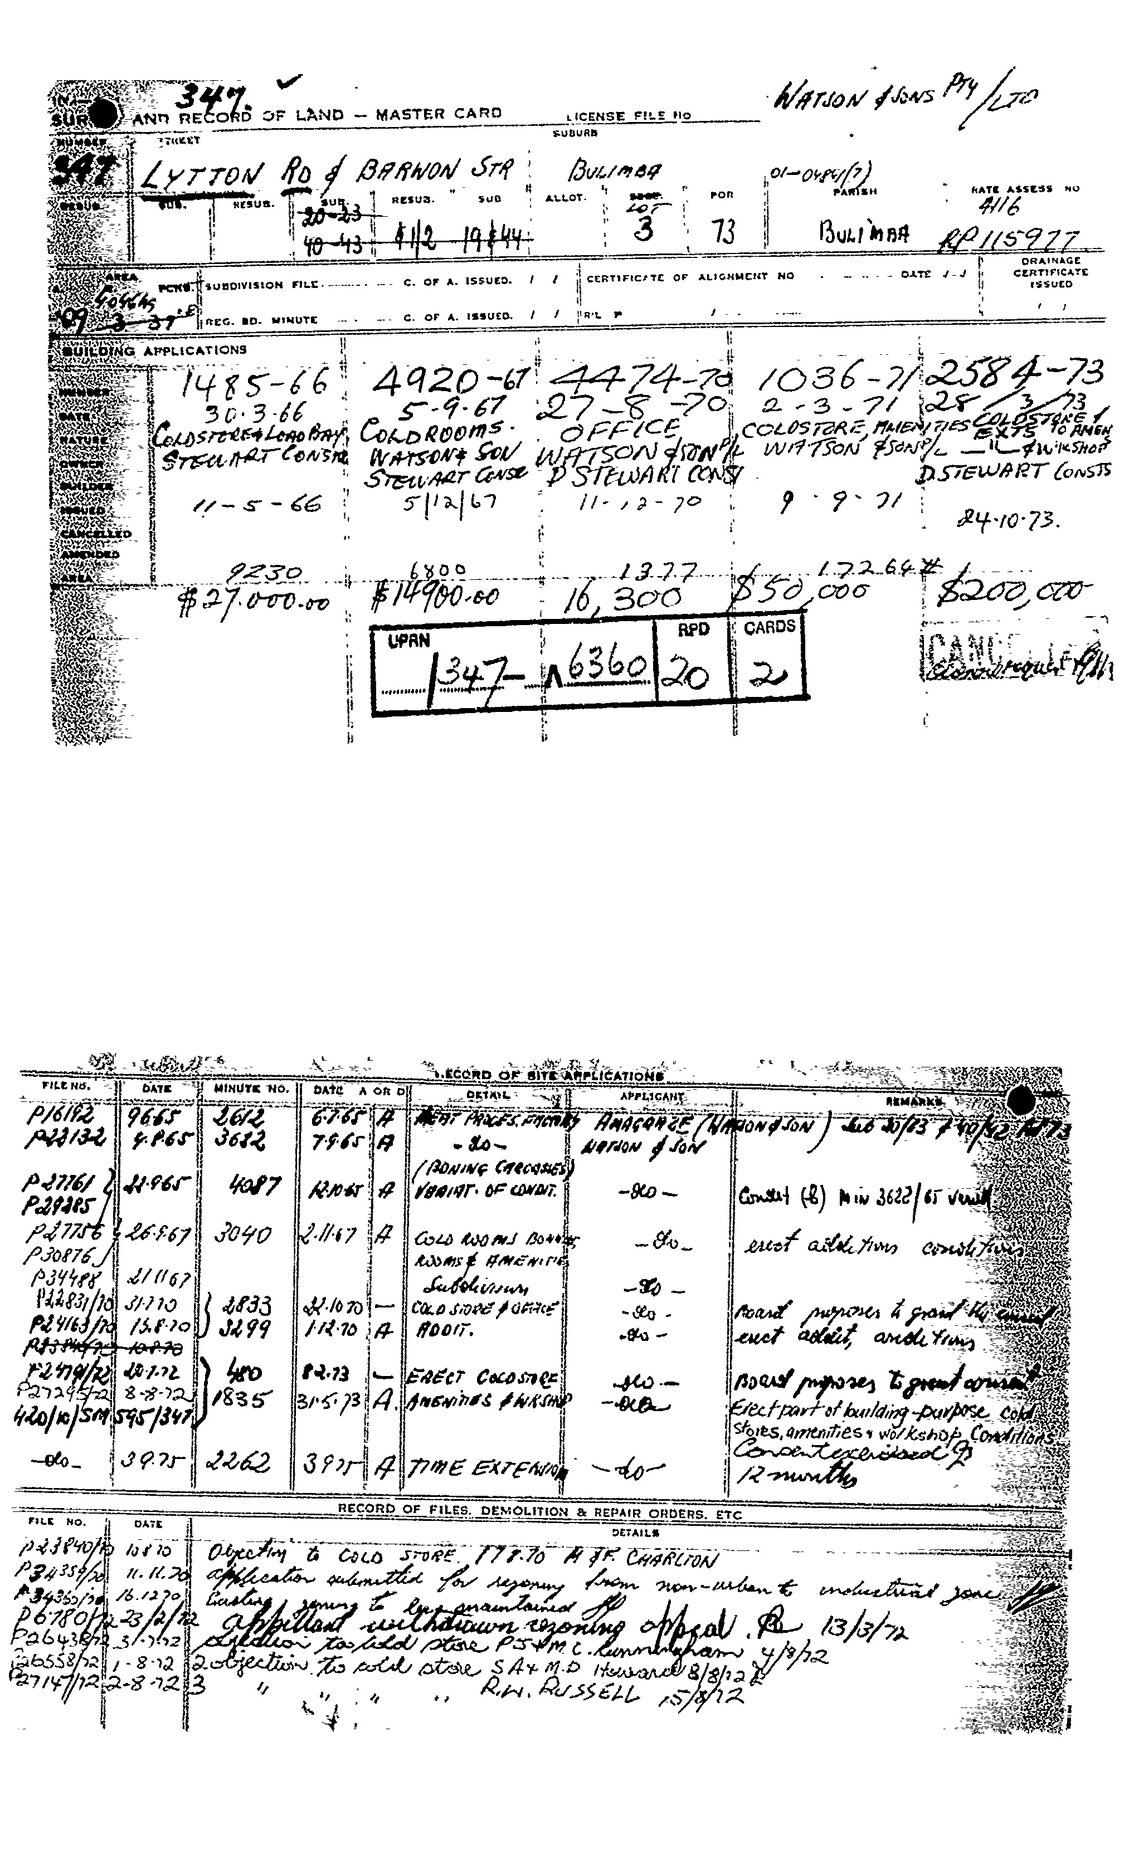 347. ✓
WATSON & SONS PTY/LTD
AND RECORD OF LAND – MASTER CARD LICENSE FILE No
NUMBER STREET SUBURB
347 LYTTON RD & BARWON STR BULIMBA 01-04841(7)
RESUB. SUB. RESUB. SUB. RESUB. SUB ALLOT. LOT POR PARISH RATE ASSESS NO
20-23 4116
40-43 &1/2 19&44 3 73 BULIMBA RP 115977
AREA DRAINAGE
PCHS. SUBDIVISION FILE C. OF A. ISSUED. / / CERTIFICATE OF ALIGNMENT NO DATE / / CERTIFICATE
ISSUED
3 37 REG. BD. MINUTE C. OF A. ISSUED. / / R/L P / / /
BUILDING APPLICATIONS
NUMBER 1485-66 4920-67 4474-70 1036-71 2584-73
DATE 30.3.66 5-9.67 27-8-70 2-3-71 28/3/73
NATURE COLDSTORE & LOAD BAY COLDROOMS. OFFICE COLDSTORE, AMENITIES COLDSTORE & EXTS TO AMEN & W'KSHOP
OWNER WATSON & SON WATSON & SON P/L WATSON & SON P/L —"—
BUILDER STEWART CONSTR STEWART CONST D STEWART CONST D STEWART CONSTS
ISSUED 11-5-66 5/12/67 11-12-70 9-9-71 24.10.73.
CANCELLED
AMENDED
AREA 9230 6800 1377 17264
$27.000.00 $14900.00 16,300 $50,000 $200,000
UPRN RPD CARDS
/347-A6360 20 2
RECORD OF SITE APPLICATIONS
FILE NO. DATE MINUTE NO. DATE A OR D DETAIL APPLICANT REMARKS
P16192 9.6.65 2612 6.7.65 A MEAT PROCES. FACTORY (WATSON & SON)
P22132 4.8.65 3622 7.9.65 A —do— WATSON & SON
(BONING CARCASSES)
P27761 22.9.65 4087 12.10.65 A VARIAT. OF CONDIT. —do— Min 3622/65
P29285
P27756 26.9.67 3040 2.11.67 A COLD ROOMS BONING —do— erect additions conditions
P30876 ROOMS & AMENITIES
P34488 21.11.67 Subdivision —do—
P22831/70 31.7.70 2833 22.10.70 — COLD STORE & OFFICE —do— Board proposes to grant the consent
P24163/70 13.8.70 3299 1.12.70 A ADDIT. —do— erect addit, conditions
P23840/70 10.8.70
P24791/72 480 8.2.73 — ERECT COLDSTORE —do— Board proposes to grant consent
P27295/72 8-8-72 1835 31.5.73 A. AMENITIES & WKSHP —do— Erect part of building-purpose cold
420/10/SM 595/347 stores, amenities & workshop, Conditions
—do— 3.9.75 2262 3.9.75 A TIME EXTENSION —do— 12 months
RECORD OF FILES, DEMOLITION & REPAIR ORDERS, ETC
FILE NO. DATE DETAILS
P23840/70 10.8.70 Objection to COLD STORE 17.8.70 H & F. CHARLTON
P34359/70 11.11.70 application submitted for rezoning from non-urban to industrial zone
P34360/70 16.12.70 Existing zoning to be maintained
P6780/72 23/2/72 appellant withdrawn rezoning appeal. 13/3/72
P26438/72 31-7-72 objection to cold store P J & M C. Cunningham 4/8/72
P26558/72 1-8-72 2 objection to cold store S A & M.D Howard 8/8/72
P27147/72 2-8-72 3 " " " " R.W. RUSSELL 15/8/72